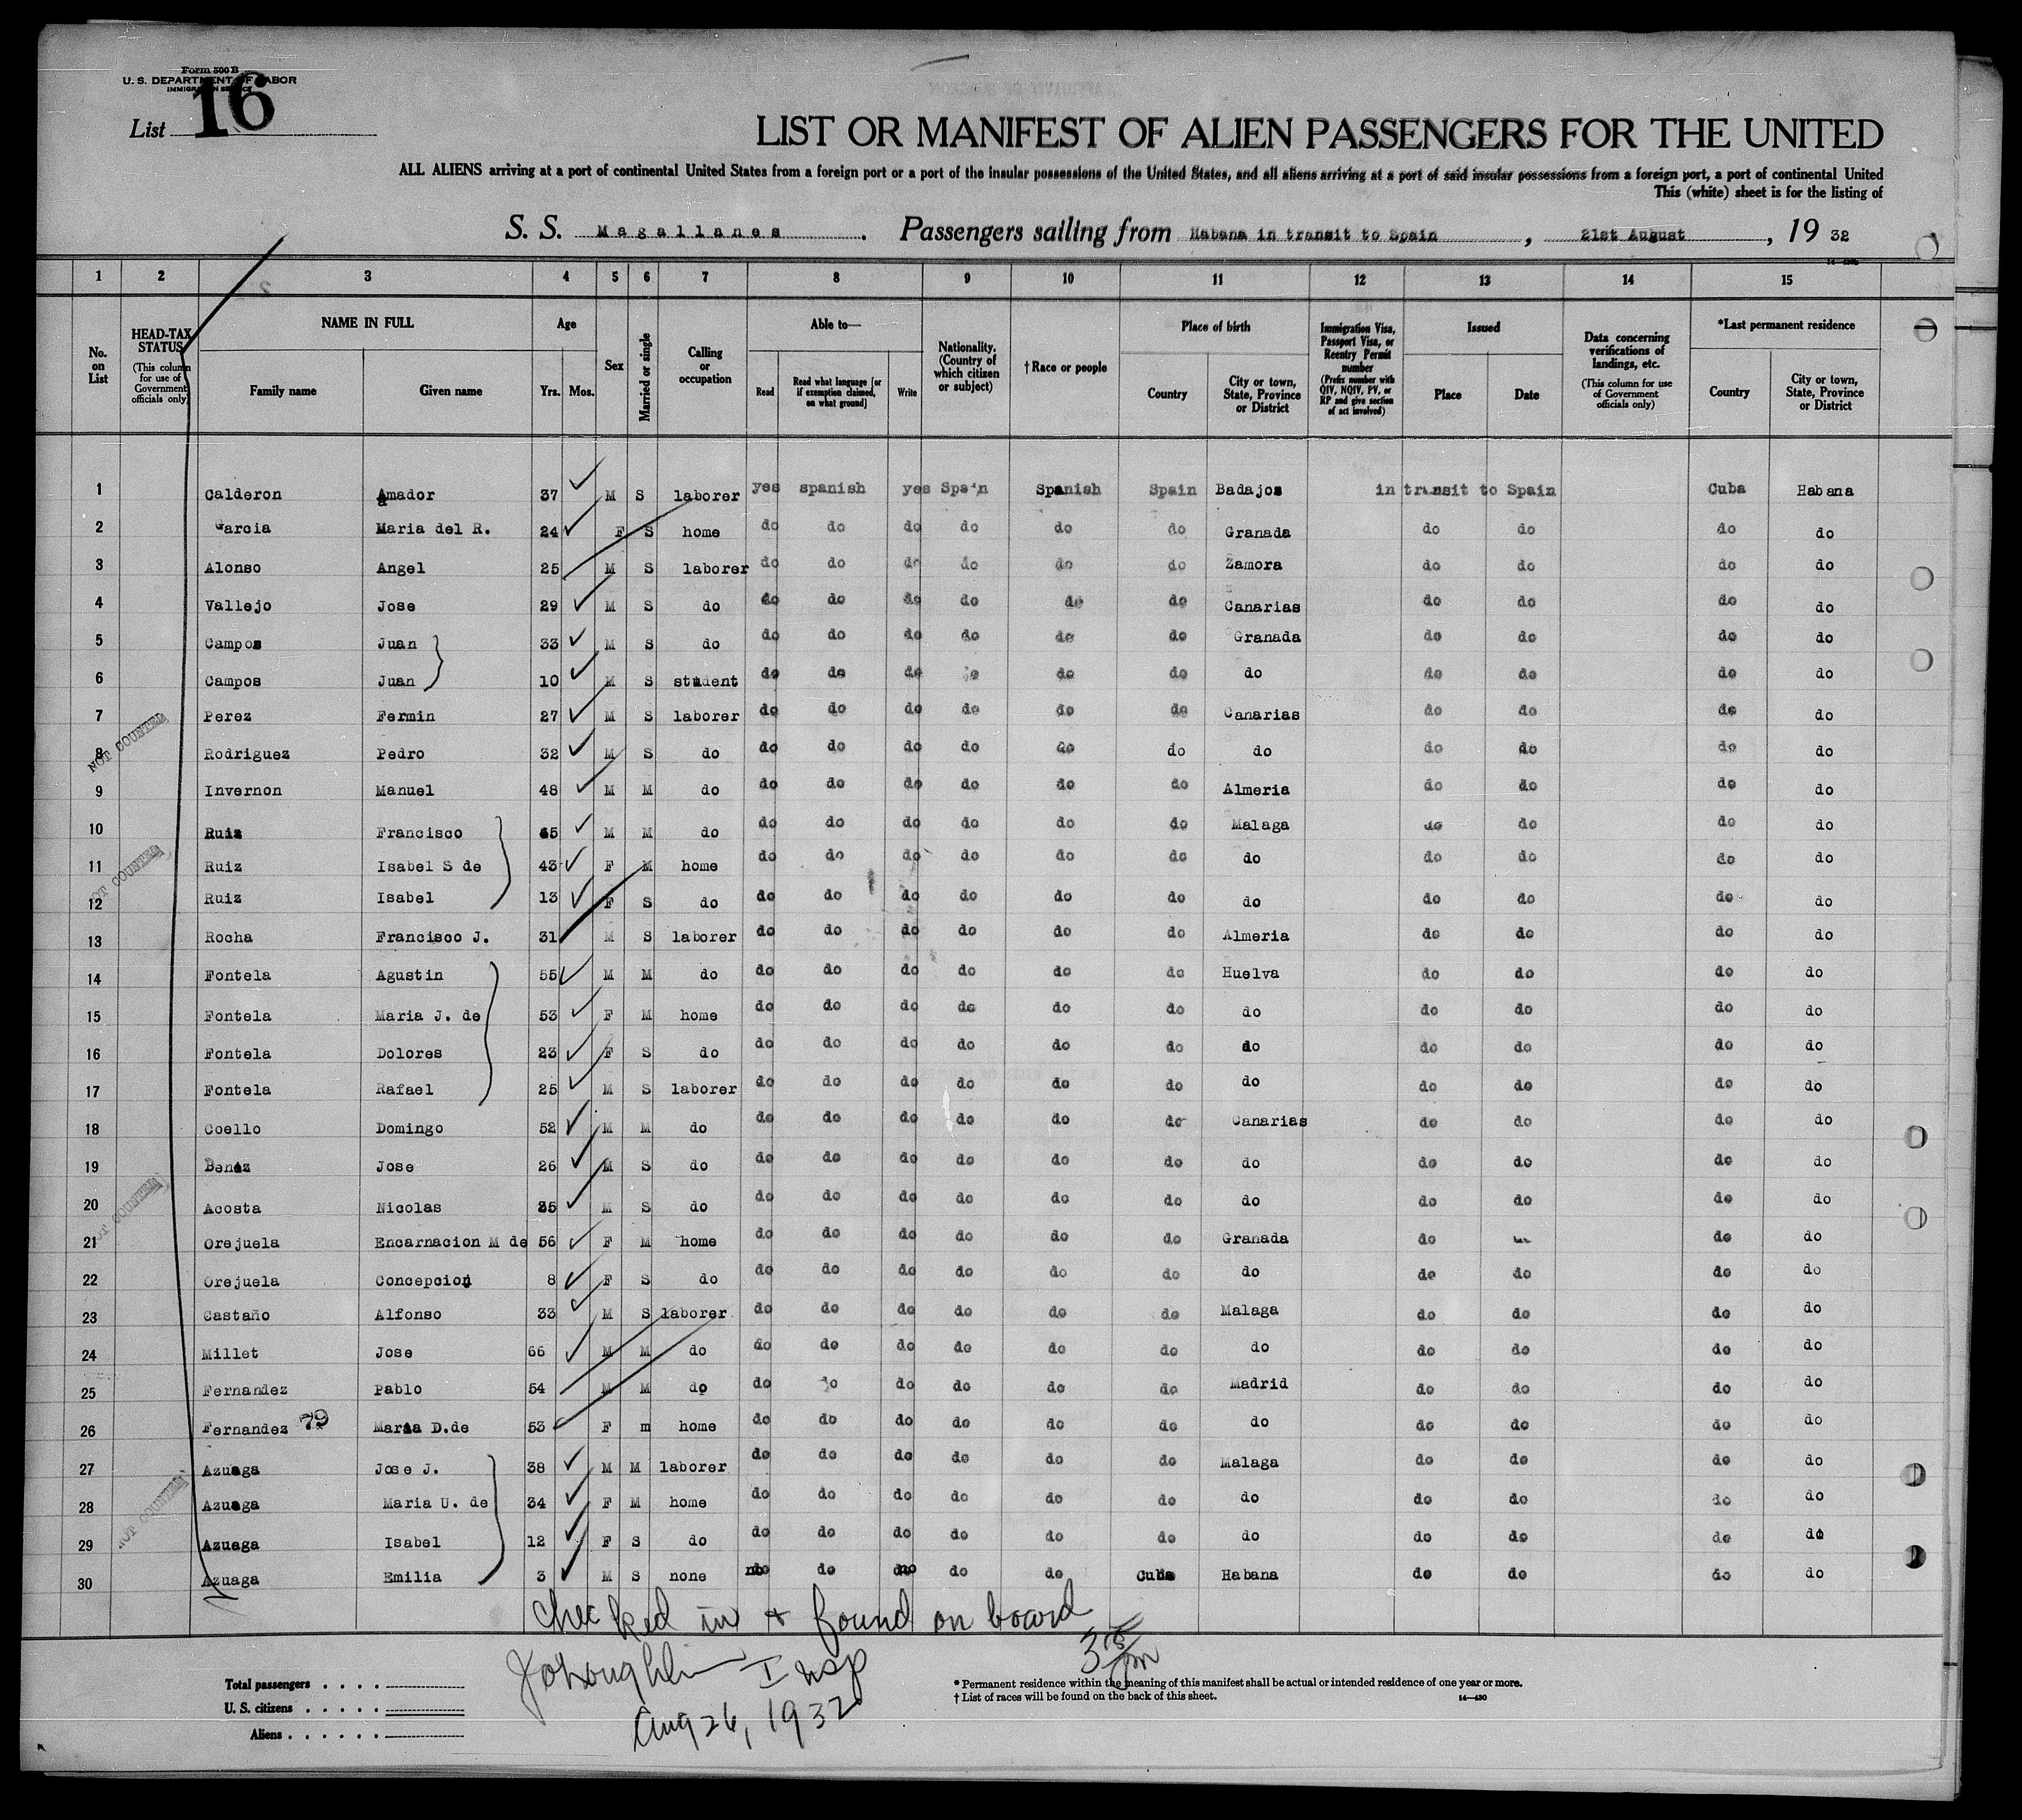 Form 500 B
U. S. DEPARTMENT OF LABOR
IMMIGRATION SERVICE
List 16
LIST OR MANIFEST OF ALIEN PASSENGERS FOR THE UNITED
ALL ALIENS arriving at a port of continental United States from a foreign port or a port of the insular possessions of the United States, and all aliens arriving at a port of said insular possessions from a foreign port, a port of continental United
This (white) sheet is for the listing of
S. S. Magallanes. Passengers sailing from Habana in transit to Spain, 21st August, 19 32
1 2 3 4 5 6 7 8 9 10 11 12 13 14 15
No. on List
HEAD-TAX STATUS (This column for use of Government officials only)
NAME IN FULL Family name Given name
Age Yrs. Mos.
Sex
Married or single
Calling or occupation
Able to— Read Read what language [or if exemption claimed, on what ground] Write
Nationality. (Country of which citizen or subject)
† Race or people
Place of birth Country City or town, State, Province or District
Immigration Visa, Passport Visa, or Reentry Permit number (Prefix number with QIV, NQIV, PV, or RP and give section of act involved)
Issued Place Date
Data concerning verifications of landings, etc. (This column for use of Government officials only)
*Last permanent residence Country City or town, State, Province or District
1 Calderon Amador 37 M S laborer yes spanish yes Spain Spanish Spain Badajos in transit to Spain Cuba Habana
2 Garcia Maria del R. 24 F S home do do do do do do Granada do do do do
3 Alonso Angel 25 M S laborer do do do do do do Zamora do do do do
4 Vallejo Jose 29 M S do do do do do do do Canarias do do do do
5 Campos Juan 33 M S do do do do do do do Granada do do do do
6 Campos Juan 10 M S student do do do do do do do do do do do
7 Perez Fermin 27 M S laborer do do do do do do Canarias do do do do
8 Rodriguez Pedro 32 M S do do do do do do do do do do do do
9 Invernon Manuel 48 M M do do do do do do do Almeria do do do do
10 Ruiz Francisco 45 M M do do do do do do do Malaga do do do do
11 Ruiz Isabel S de 43 F M home do do do do do do do do do do do
12 Ruiz Isabel 13 F S do do do do do do do do do do do do
13 Rocha Francisco J. 31 M S laborer do do do do do do Almeria do do do do
14 Fontela Agustin 55 M M do do do do do do do Huelva do do do do
15 Fontela Maria J. de 53 F M home do do do do do do do do do do do
16 Fontela Dolores 23 F S do do do do do do do do do do do do
17 Fontela Rafael 25 M S laborer do do do do do do do do do do do
18 Coello Domingo 52 M M do do do do do do do Canarias do do do do
19 Jose 26 M S do do do do do do do do do do do do
20 Acosta Nicolas M S do do do do do do do do do do do do
21 Orejuela Encarnacion M de 56 F M home do do do do do do Granada do do do do
22 Orejuela Concepcion 8 F S do do do do do do do do do do do do
23 Castaño Alfonso 33 M S laborer do do do do do do Malaga do do do do
24 Millet Jose 66 M M do do do do do do do do do do do do
25 Fernandez Pablo 54 M M do do do do do do do Madrid do do do do
26 Fernandez 79 Maria D.de 53 F m home do do do do do do do do do do do
27 Azuaga Jose J. 38 M M laborer do do do do do do Malaga do do do do
28 Azuaga Maria U. de 34 F M home do do do do do do do do do do do
29 Azuaga Isabel 12 F S do do do do do do do do do do do do
30 Azuaga Emilia 3 M S none no do no do do Cuba Habana do do do do
NOT COUNTED
NOT COUNTED
NOT COUNTED
NOT COUNTED
checked in & found on board
Insp
Aug 26, 1932
Total passengers
U. S. citizens
Aliens
* Permanent residence within the meaning of this manifest shall be actual or intended residence of one year or more.
† List of races will be found on the back of this sheet.
14—430